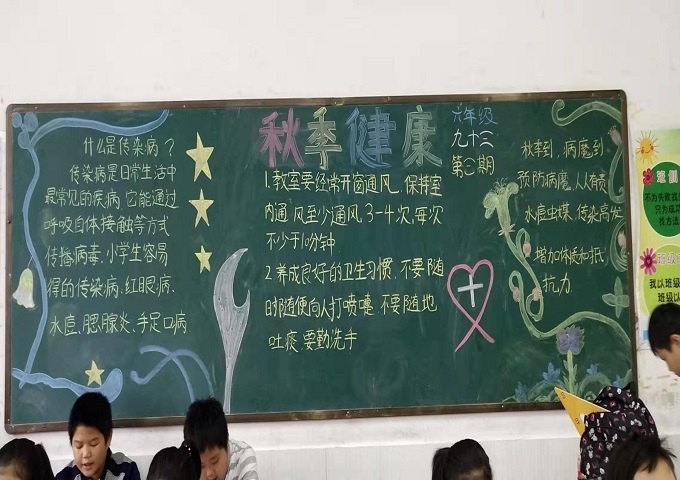 秋季健康
六年级
九十三
第二期
什么是传染病？
传染病是日常生活中
最常见的疾病,它能通过
呼吸自体接触等方式
传播病毒.小学生容易
得的传染病:红眼病.
水痘、腮腺炎、手足口病
1.教室要经常开窗通风.保持室
内通风至少通风3-4次,每次
不少于10分钟
2.养成良好的卫生习惯.不要随
时随便向人打喷嚏.不要随地
吐痰.要勤洗手
秋季到,病魔到.
预防病魔,人人有责
水痘虫媒,传染高发
增加体质和抵
抗力
不为失败找
只为成功
找方法
我以班级
班级以